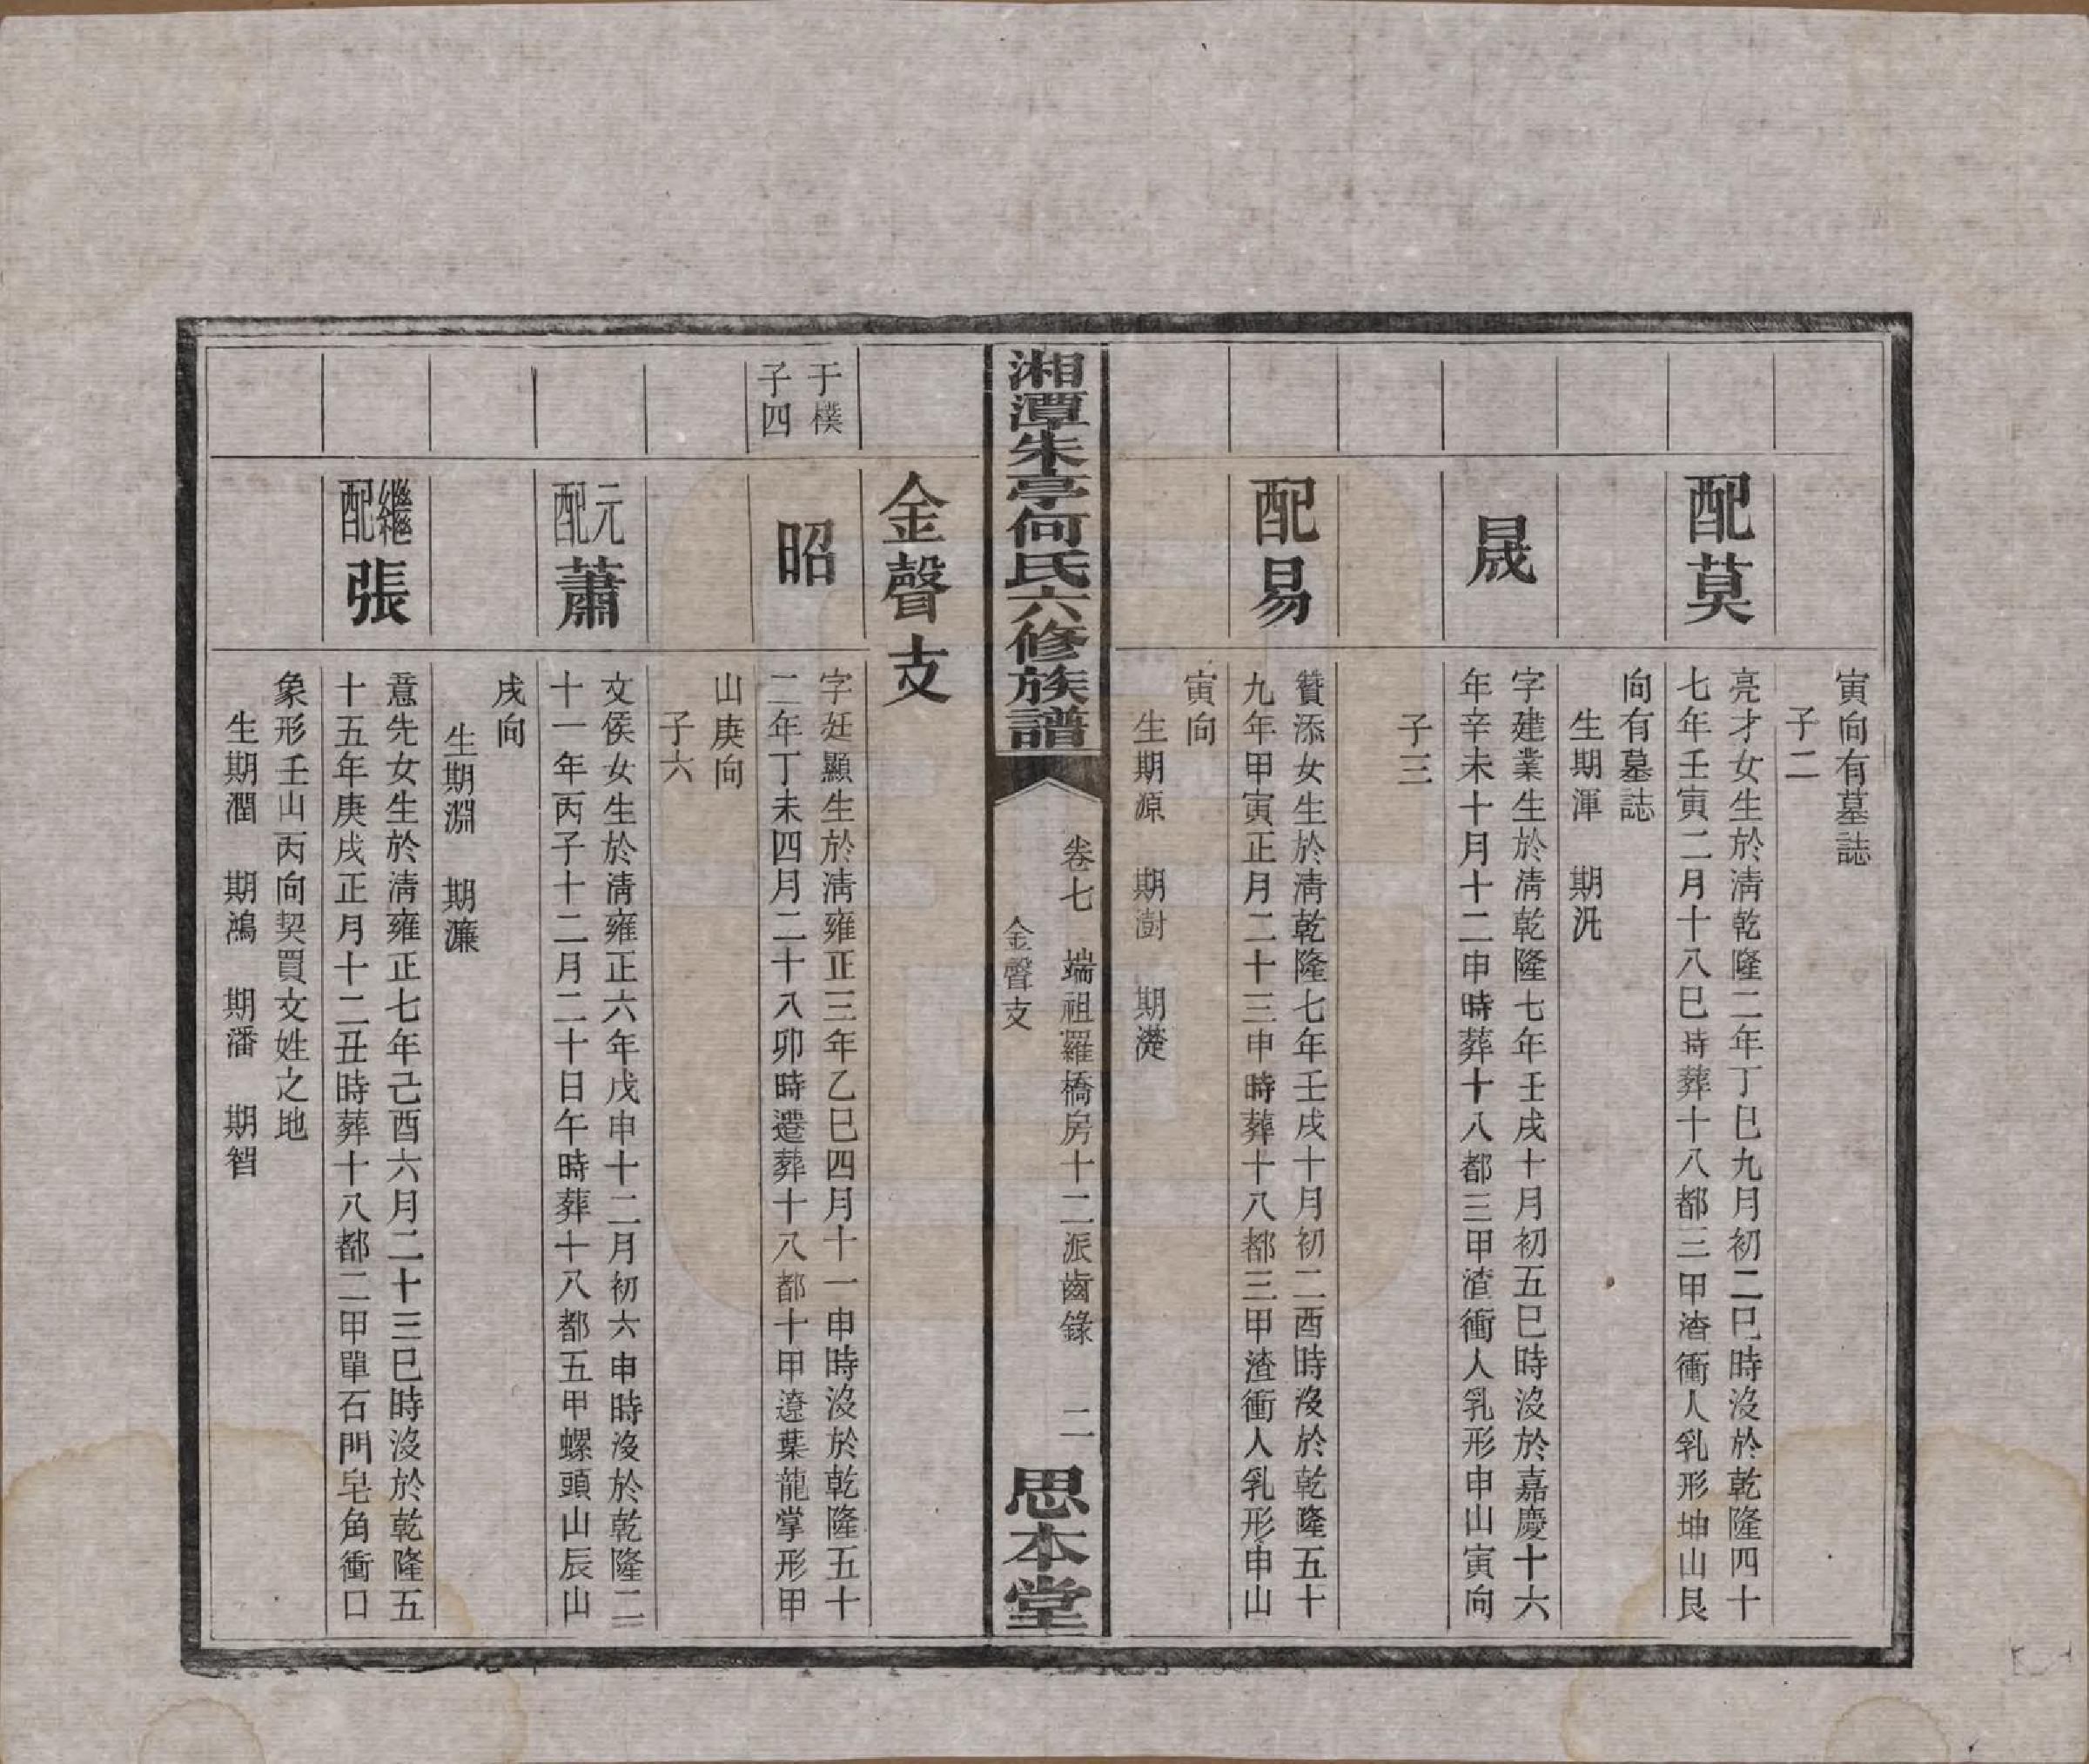 寅向有墓誌
子二
配莫
亮才女生於清乾隆二年丁巳九月初二巳時沒於乾隆四十
七年壬寅二月十八巳時葬十八都三甲渣衝人乳形坤山艮
向有墓誌
生期渾　期汎
晟
字建業生於清乾隆七年壬戌十月初五巳時沒於嘉慶十六
年辛未十月十二申時葬十八都三甲渣衝人乳形申山寅向
子三
配易
贊添女生於清乾隆七年壬戌十月初二酉時沒於乾隆五十
九年甲寅正月二十三申時葬十八都三甲渣衝人乳形申山
寅向
生期源　期澍　期濋
湘潭朱亭何氏六修族譜
卷七　端祖羅橋房十二派齒錄　二
金聲支
思本堂
金聲支
于樸
子四
昭
字廷顯生於清雍正三年乙巳四月十一申時沒於乾隆五十
二年丁未四月二十八卯時遷葬十八都十甲遼葉龍掌形甲
山庚向
子六
元配蕭
文侯女生於清雍正六年戊申十二月初六申時沒於乾隆二
十一年丙子十二月二十日午時葬十八都五甲螺頭山辰山
戌向
生期淵　期濂
繼配張
意先女生於清雍正七年己酉六月二十三巳時沒於乾隆五
十五年庚戌正月十二丑時葬十八都二甲單石門皂角衝口
象形壬山丙向契買文姓之地
生期潤　期鴻　期潘　期智